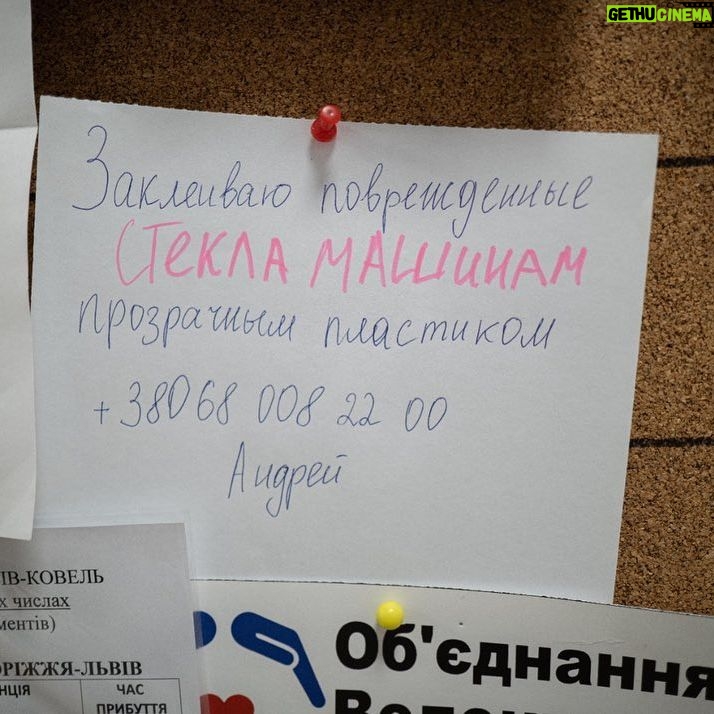 GETHU CINEMA
Заклеиваю поврежденные
СТЕКЛА МАШИНАМ
прозрачным пластиком
+38068 008 22 00
Андрей
ІВ-КОВЕЛЬ
х числах
ментів)
РІЖЖЯ-ЛЬВІВ
НЦІЯ
ЧАС
ПРИБУТТЯ
Об'єднання